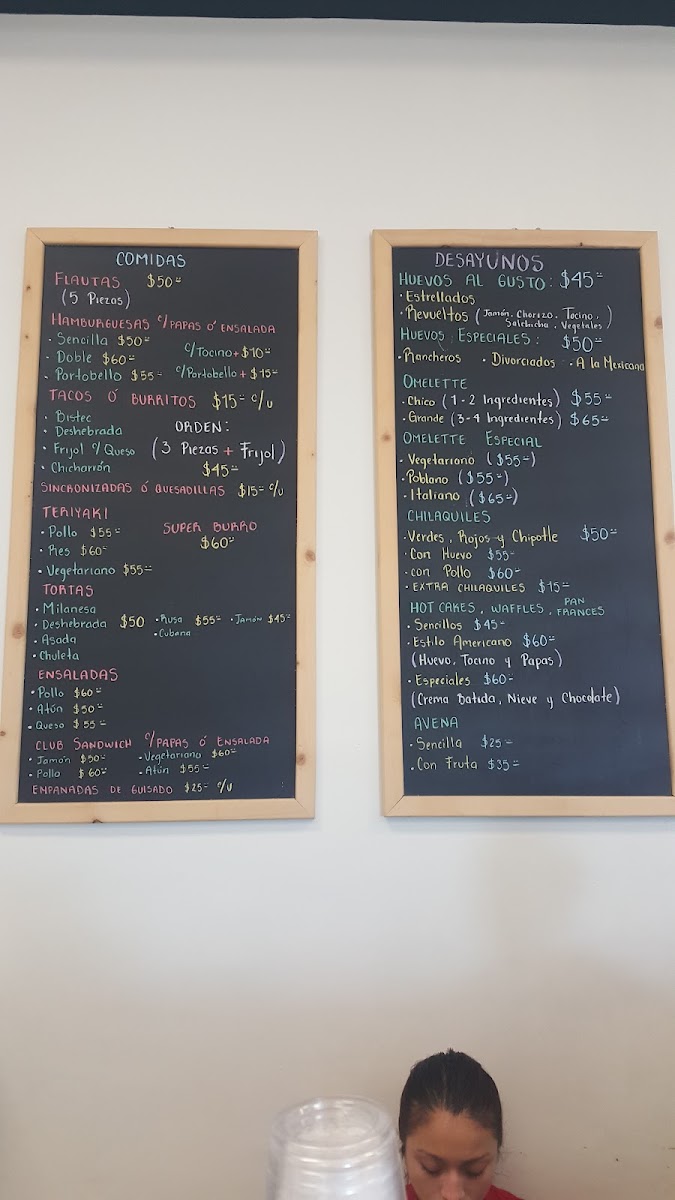 COMIDAS
FLAUTAS $50=
(5 Piezas)
HAMBURGUESAS c/PAPAS ó ENSALADA
· Sencilla $50=
· Doble $60= c/Tocino + $10=
· Portobello $55= c/Portobello + $15=
TACOS Ó BURRITOS $15= c/u
· Bistec
· Deshebrada
· Frijol c/Queso
· Chicharrón
ORDEN:
(3 Piezas + Frijol)
$45=
SINCRONIZADAS Ó QUESADILLAS $15= c/u
TERIYAKI
· Pollo $55=
· Res $60=
· Vegetariano $55=
SUPER BURRO
$60=
TORTAS
· Milanesa
· Deshebrada $50 · Rusa $55= · Jamón $45=
· Asada · Cubana
· Chuleta
ENSALADAS
· Pollo $60=
· Atún $50=
· Queso $55=
CLUB SANDWICH c/PAPAS Ó ENSALADA
· Jamón $50= · Vegetariano $60=
· Pollo $60= · Atún $55=
EMPANADAS DE GUISADO $25= c/u
DESAYUNOS
HUEVOS AL GUSTO: $45=
· Estrellados
· Revueltos (Jamón, Chorizo, Tocino,
Salchicha, Vegetales)
HUEVOS ESPECIALES: $50=
· Rancheros · Divorciados · A la Mexicana
OMELETTE
· Chico (1-2 Ingredientes) $55=
· Grande (3-4 Ingredientes) $65=
OMELETTE ESPECIAL
· Vegetariano ($55=)
· Poblano ($55=)
· Italiano ($65=)
CHILAQUILES
· Verdes, Rojos y Chipotle $50=
· Con Huevo $55=
· con Pollo $60=
· EXTRA CHILAQUILES $15=
HOT CAKES, WAFFLES, PAN FRANCES
· Sencillos $45=
· Estilo Americano $60=
(Huevo, Tocino y Papas)
· Especiales $60=
(Crema Batida, Nieve y Chocolate)
AVENA
· Sencilla $25=
· Con Fruta $35=